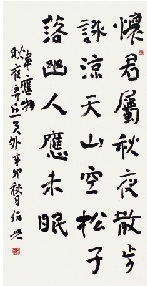 懷君屬秋夜散步
詠涼天山空松子
落幽人應未眠
韋應物
秋夜寄丘員外辛卯